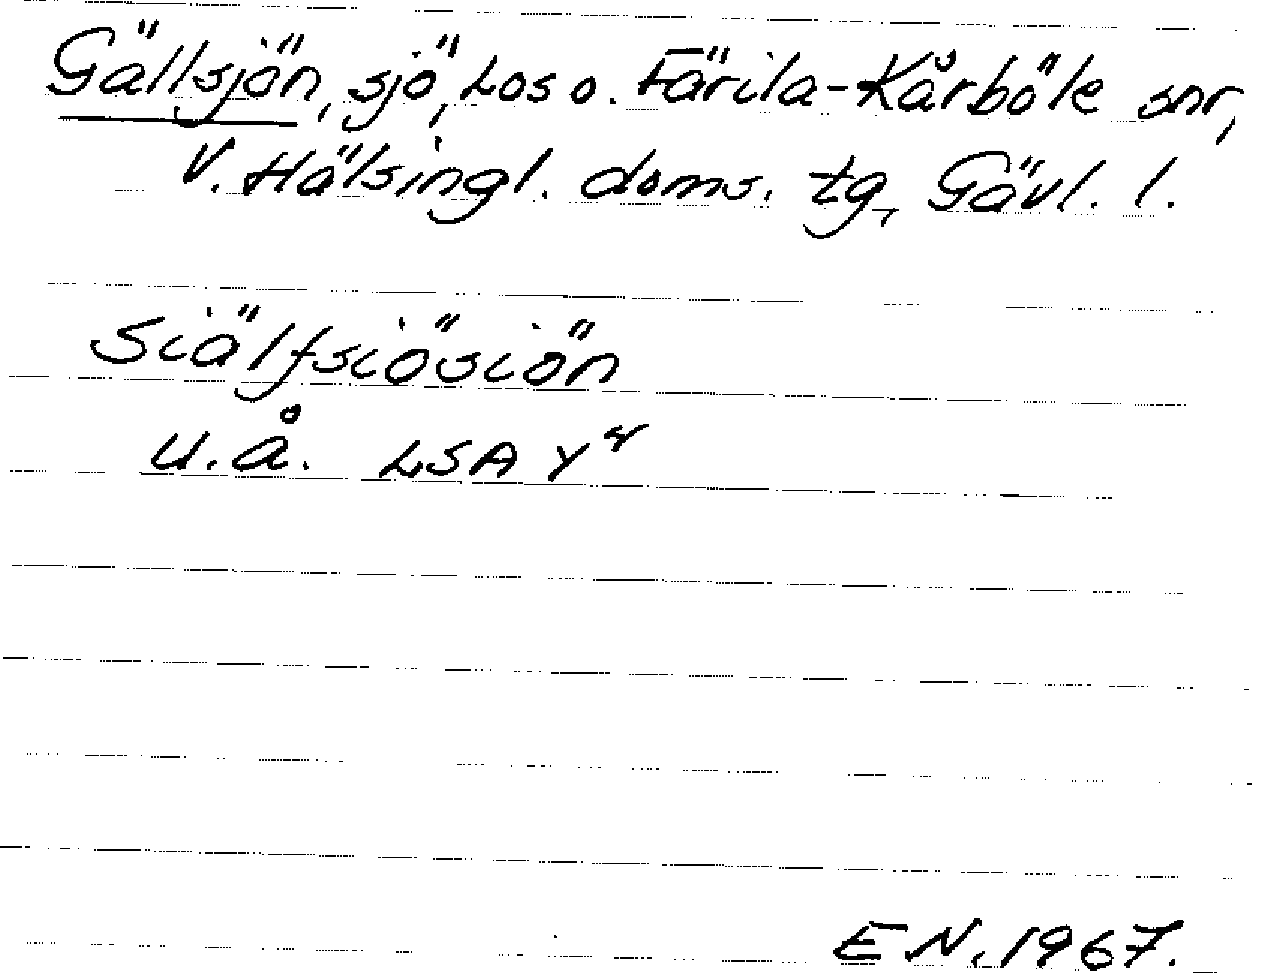 Gällsjön, sjö, Los o. Färila-Kårböle snr,
V. Hälsingl. doms. tg, Gävl. l.
Siälfsiösiön
u.å. LSA Y 4
E N. 1967.